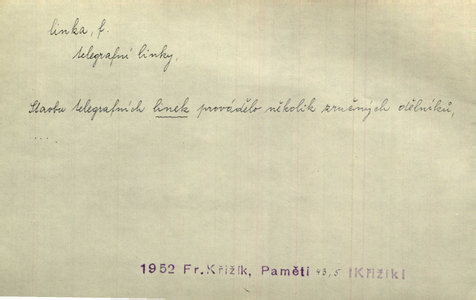 linka, f.
telegrafní linky.
Stavbu telegrafních linek provádělo několik zručných dělníků,
....
1952 Fr. Křižík, Paměti 43,5 (Křižík)